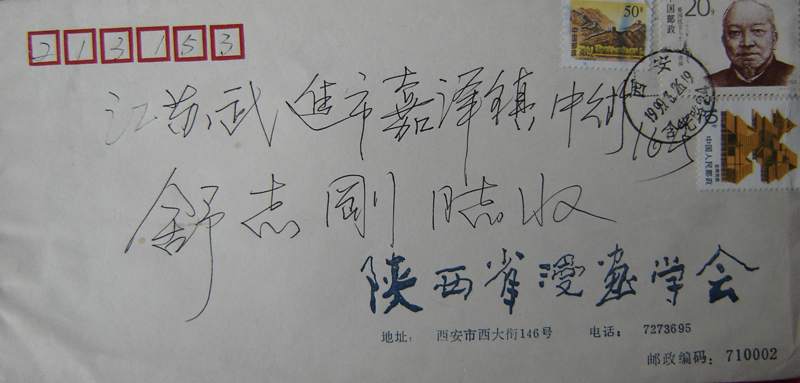 213153
50分
20分
中国邮政
江苏武进市嘉泽镇中街
16号
西安
1999.3.26.19
中国人民邮政
舒志刚 同志收
陕西省漫画学会
地址: 西安市西大街146号 电话: 7273695
邮政编码: 710002